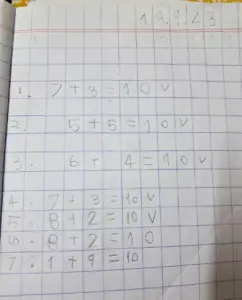 19.9.23
1. 7+3=10 v
2. 5+5=10 v
3. 6+ 4=10 v
4. 7+3=10 v
5. 8+2=10 v
6. 8+2=10
7. 1+9=10